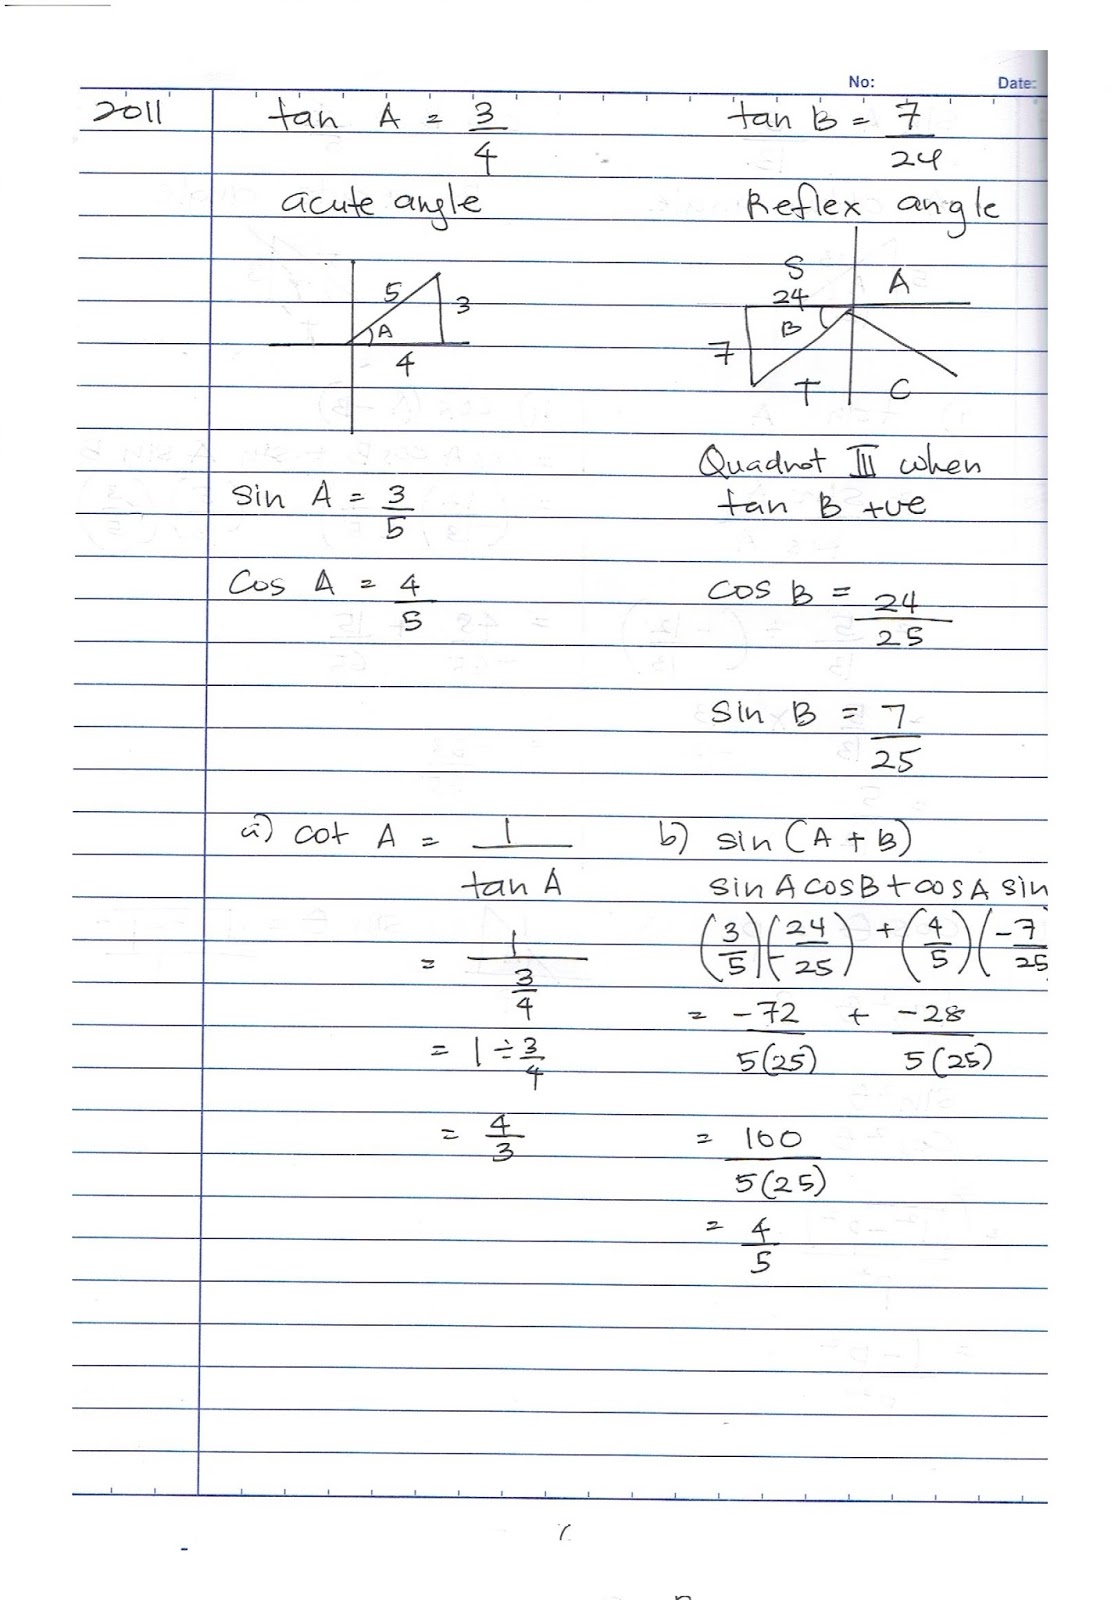 No: Date:
2011 tan A = 3/4 tan B = 7/24
acute angle Reflex angle
5 3 A 4
S A 24 B 7 T C
Quadnot III when
tan B +ve
sin A = 3/5
cos A = 4/5 cos B = 24/25
sin B = 7/25
a) cot A = 1/tan A b) sin (A + B)
sin A cos B + cos A sin
= 1/(3/4) (3/5)(-24/25) + (4/5)(-7/25
= 1 ÷ 3/4 = -72/5(25) + -28/5(25)
= 4/3 = 100/5(25)
= 4/5